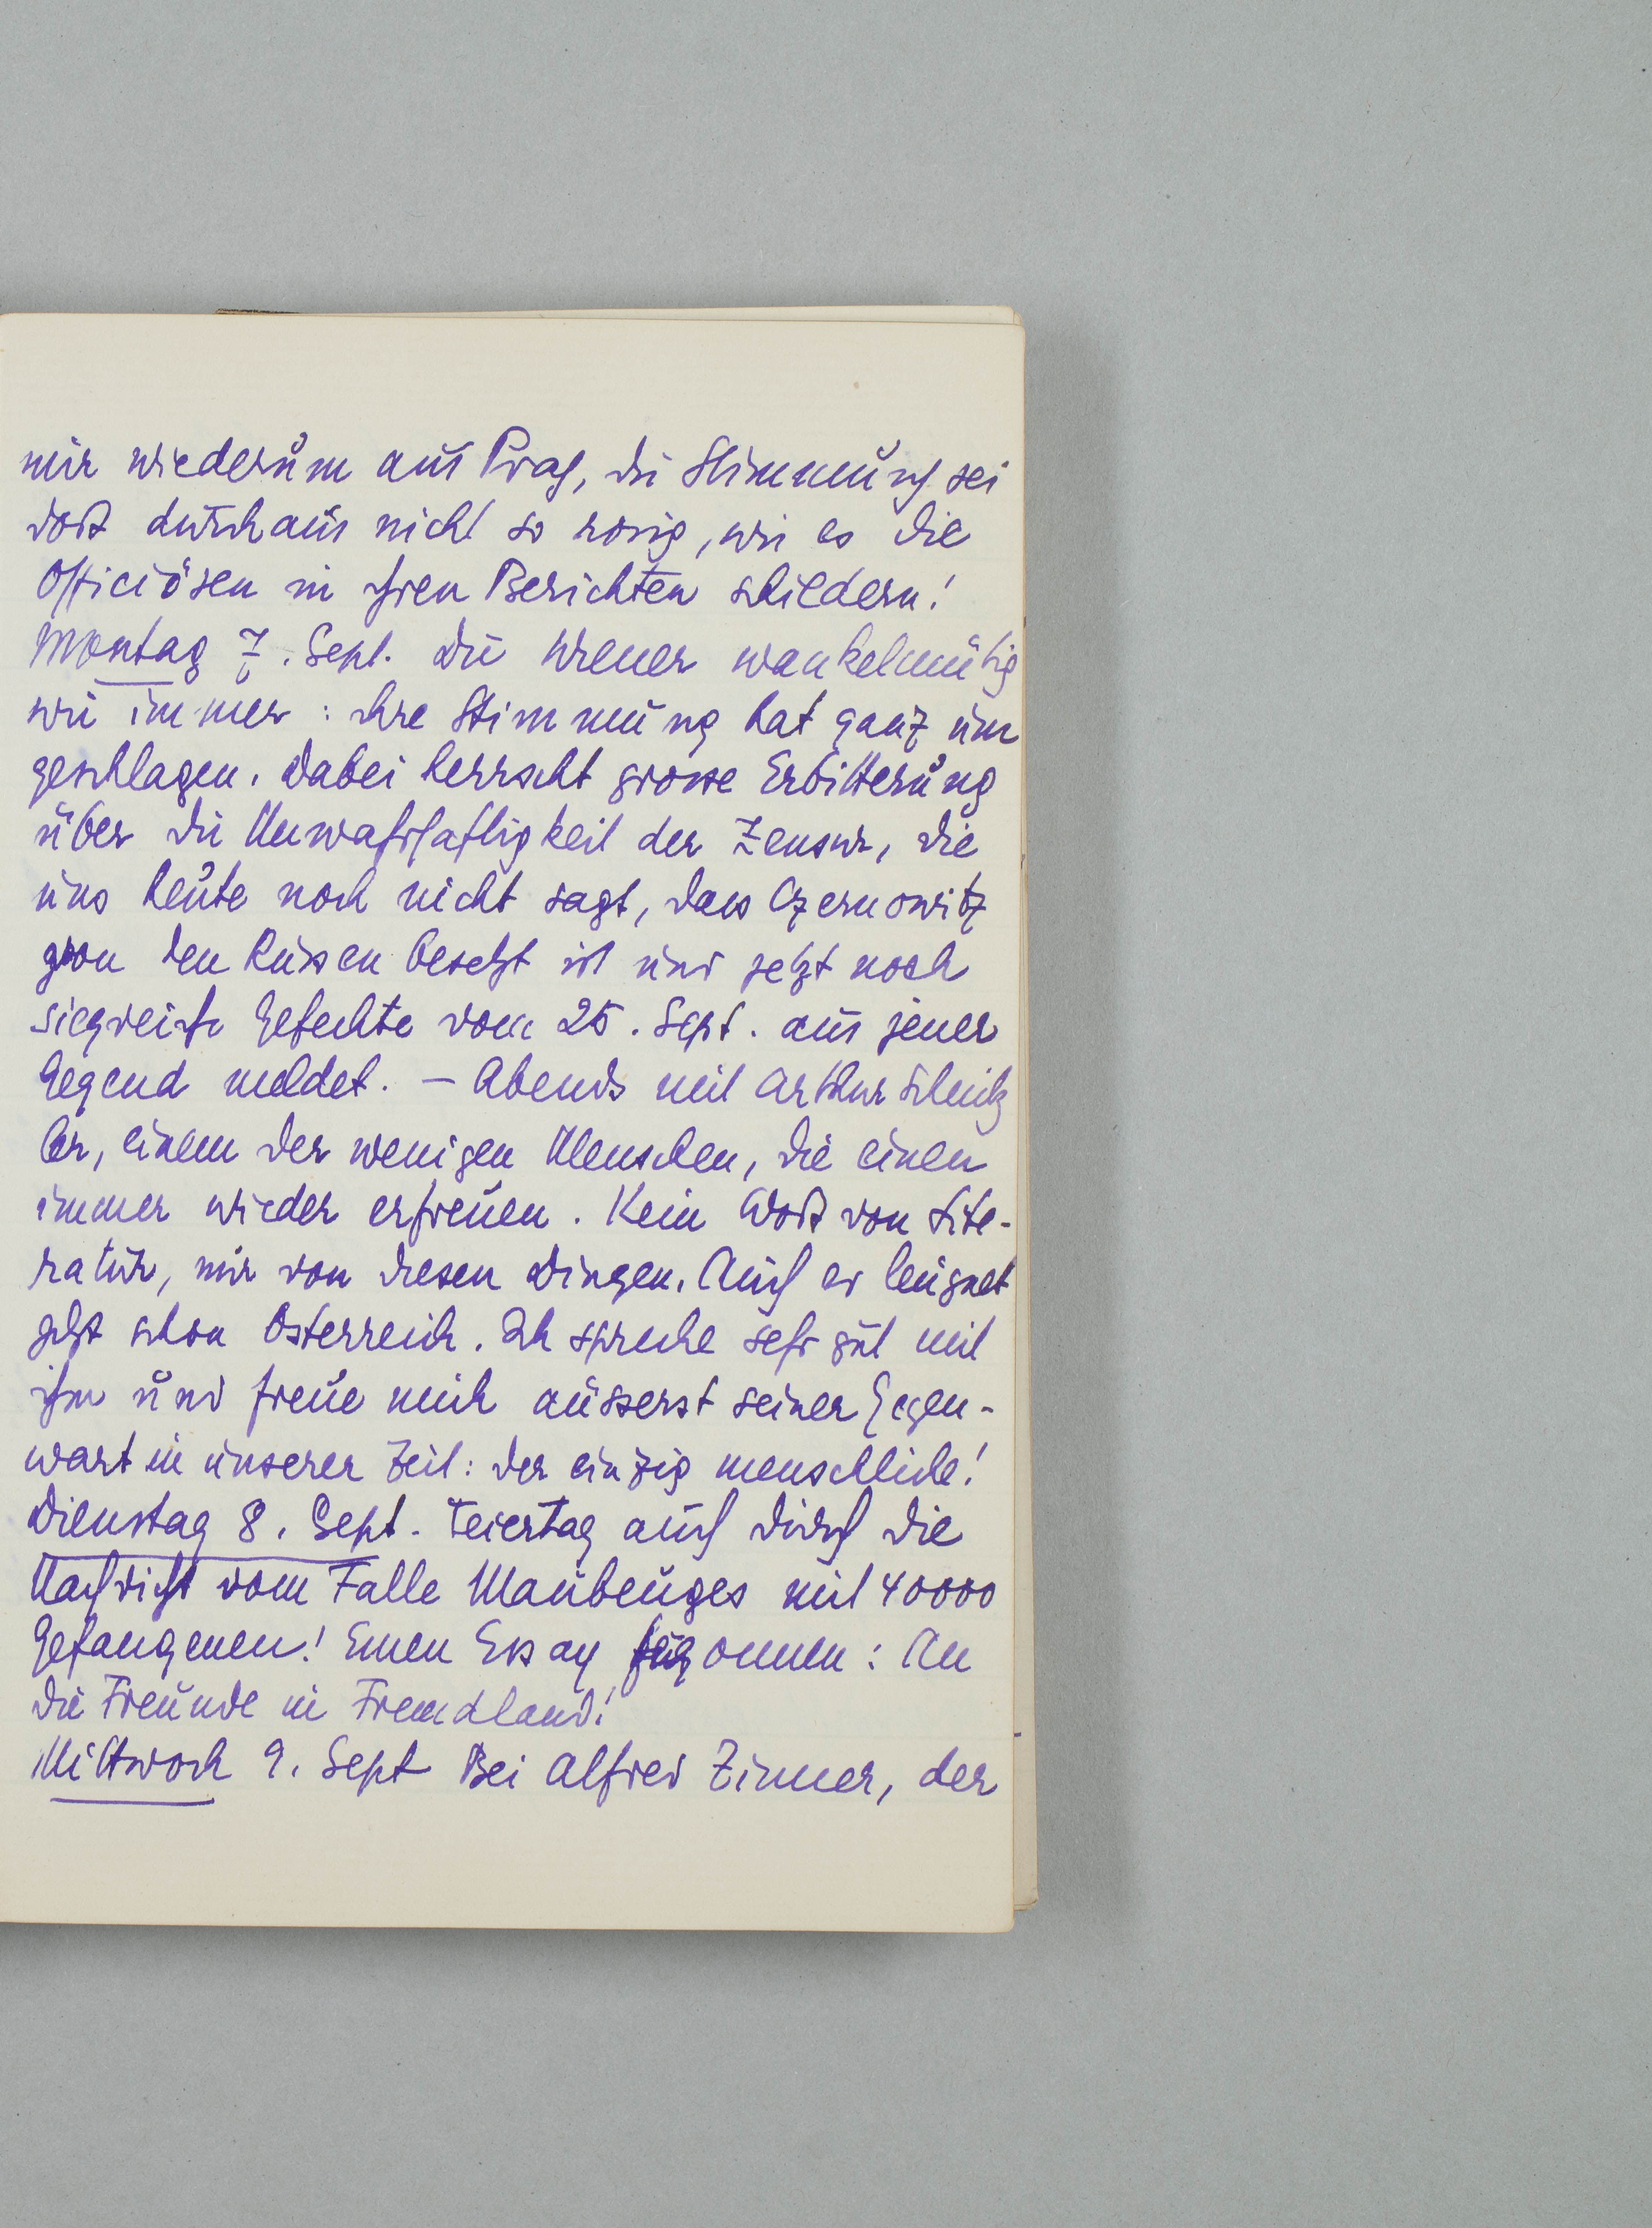 mir wiederum aus Prag, die Stimmung sei
dort durchaus nicht so rosig, wie es die
Officiösen in ihren Berichten schildern!
Montag 7. Sept. Die Wiener wankelmütig
wie immer: ihre Stimmung hat ganz um
geschlagen. Dabei herrscht grosse Erbitterung
über die Unwahrhaftigkeit der Zensur, die
uns heute noch nicht sagt, dass Czernowitz
von den Russen besetzt ist und jetzt noch
siegreiche Gefechte vom 25. Sept. aus jener
Gegend meldet. – Abends mit Arthur Schnitz
ler, einem der wenigen Menschen, die einen
immer wieder erfreuen. Kein Wort von Lite-
ratur, nur von diesen Dingen. Auch er leugnet
jetzt schon Österreich. Ich spreche sehr gut mit
ihm und freue mich äusserst seiner Gegen-
wart in unserer Zeit: der einzig menschliche!
Dienstag 8. Sept. Feiertag auch durch die
Nachricht vom Falle Maubeuges mit 40000
Gefangenen! Einen Essay begonnen: An
die Freunde in Fremdland!
Mittwoch 9. Sept Bei Alfred Zinner, der